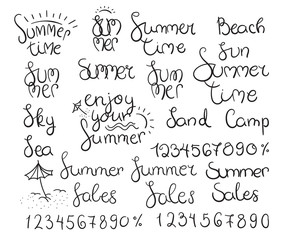 Summer
time
Sum
mer
Summer
time
Beach
Sun
Summer
time
Sum
mer
Summer
Sum
mer
Sky
enjoy
your
Summer
Sand Camp
Sea
1234567890%
Summer
Sales
Summer
Sales
Summer
Sales
1234567890%
1234567890